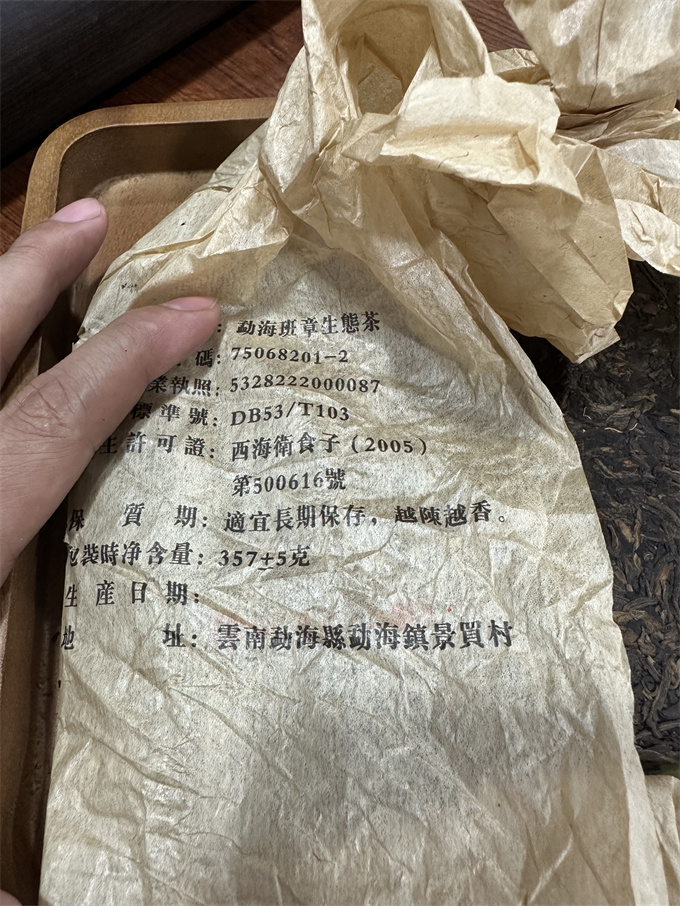 ：勐海班章生態茶
碼：75068201-2
業執照：5328222000087
標準號：DB53/T103
生許可證：西海衛食子（2005）
第500616號
保質期：適宜長期保存，越陳越香。
包裝時净含量：357±5克
生産日期：
地址：雲南勐海縣勐海鎮景買村